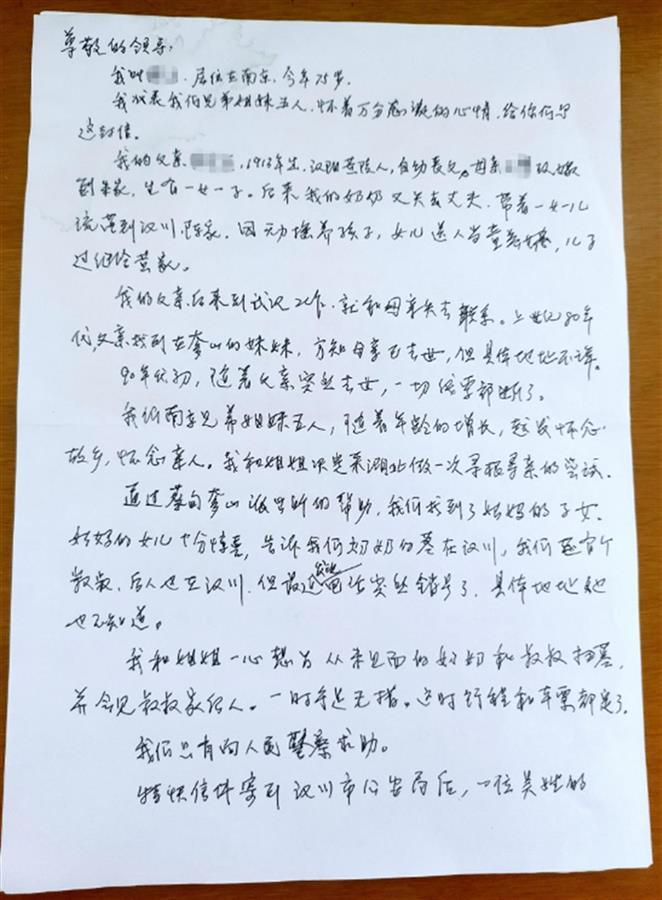 尊敬的领导:
我叫 居住在南京,今年75岁。
我代表我们兄弟姐妹五人,怀着万分感激的心情,给你们写
这封信。
我的父亲 ,1913年生,汉阳 人,自幼丧父,母亲 改嫁
到朱家,生有一女一子。后来我的奶奶又失去丈夫,带着一女一儿
流落到汉川陈家,因无力抚养孩子,女儿送人当童养媳,儿子
过继给黄家。
我的父亲后来到武汉工作,就和母亲失去联系。上世纪80年
代,父亲找到在奓山的妹妹,方知母亲已去世,但具体地址不详。
90年代初,随着父亲突然去世,一切线索都断了。
我们南京兄弟姐妹五人,随着年龄的增长,越发怀念
故乡,怀念亲人。我和姐姐决定来湖北做一次寻根寻亲的尝试。
通过蔡甸奓山派出所的帮助,我们找到了姑妈的子女。
姑妈的女儿十分惊喜,告诉我们奶奶的墓在汉川,我们还有个
叔叔,后人也在汉川,但最近 电话突然销号了,具体地址她
也不知道。
我和姐姐一心想为从未见面的奶奶和叔叔扫墓,
并会见叔叔家后人。一时手足无措。这时行程和车票都定了。
我们只有向人民警察求助。
特快信件寄到汉川市公安局后,一位吴姓的